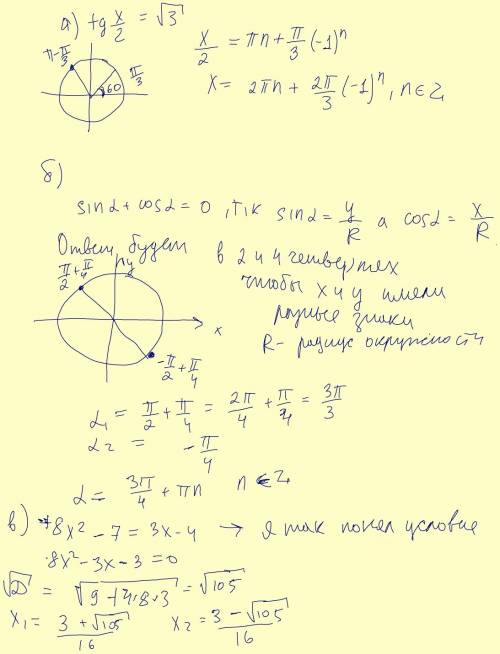 а) tg x/2 = √3
x/2 = πn + π/3 (-1)ⁿ
x = 2πn + 2π/3 (-1)ⁿ, n ∈ Z
π - π/3
π/3
60
б)
sin α + cos α = 0, т.к sin α = y/R а cos α = x/R
Ответы будем в 2 и 4 четвертях
чтобы x и y имели
разные знаки
R - радиус окружности
π/2 + π/4
y
x
-π/2 + π/4
α₁ = π/2 + π/4 = 2π/4 + π/4 = 3π/3
α₂ = -π/4
α = 3π/4 + πn n ∈ Z
в) 8x² - 7 = 3x - 4 → я так понял условие
8x² - 3x - 3 = 0
√D = √9+4·8·3 = √105
x₁ = 3 + √105/16 x₂ = 3 - √105/16